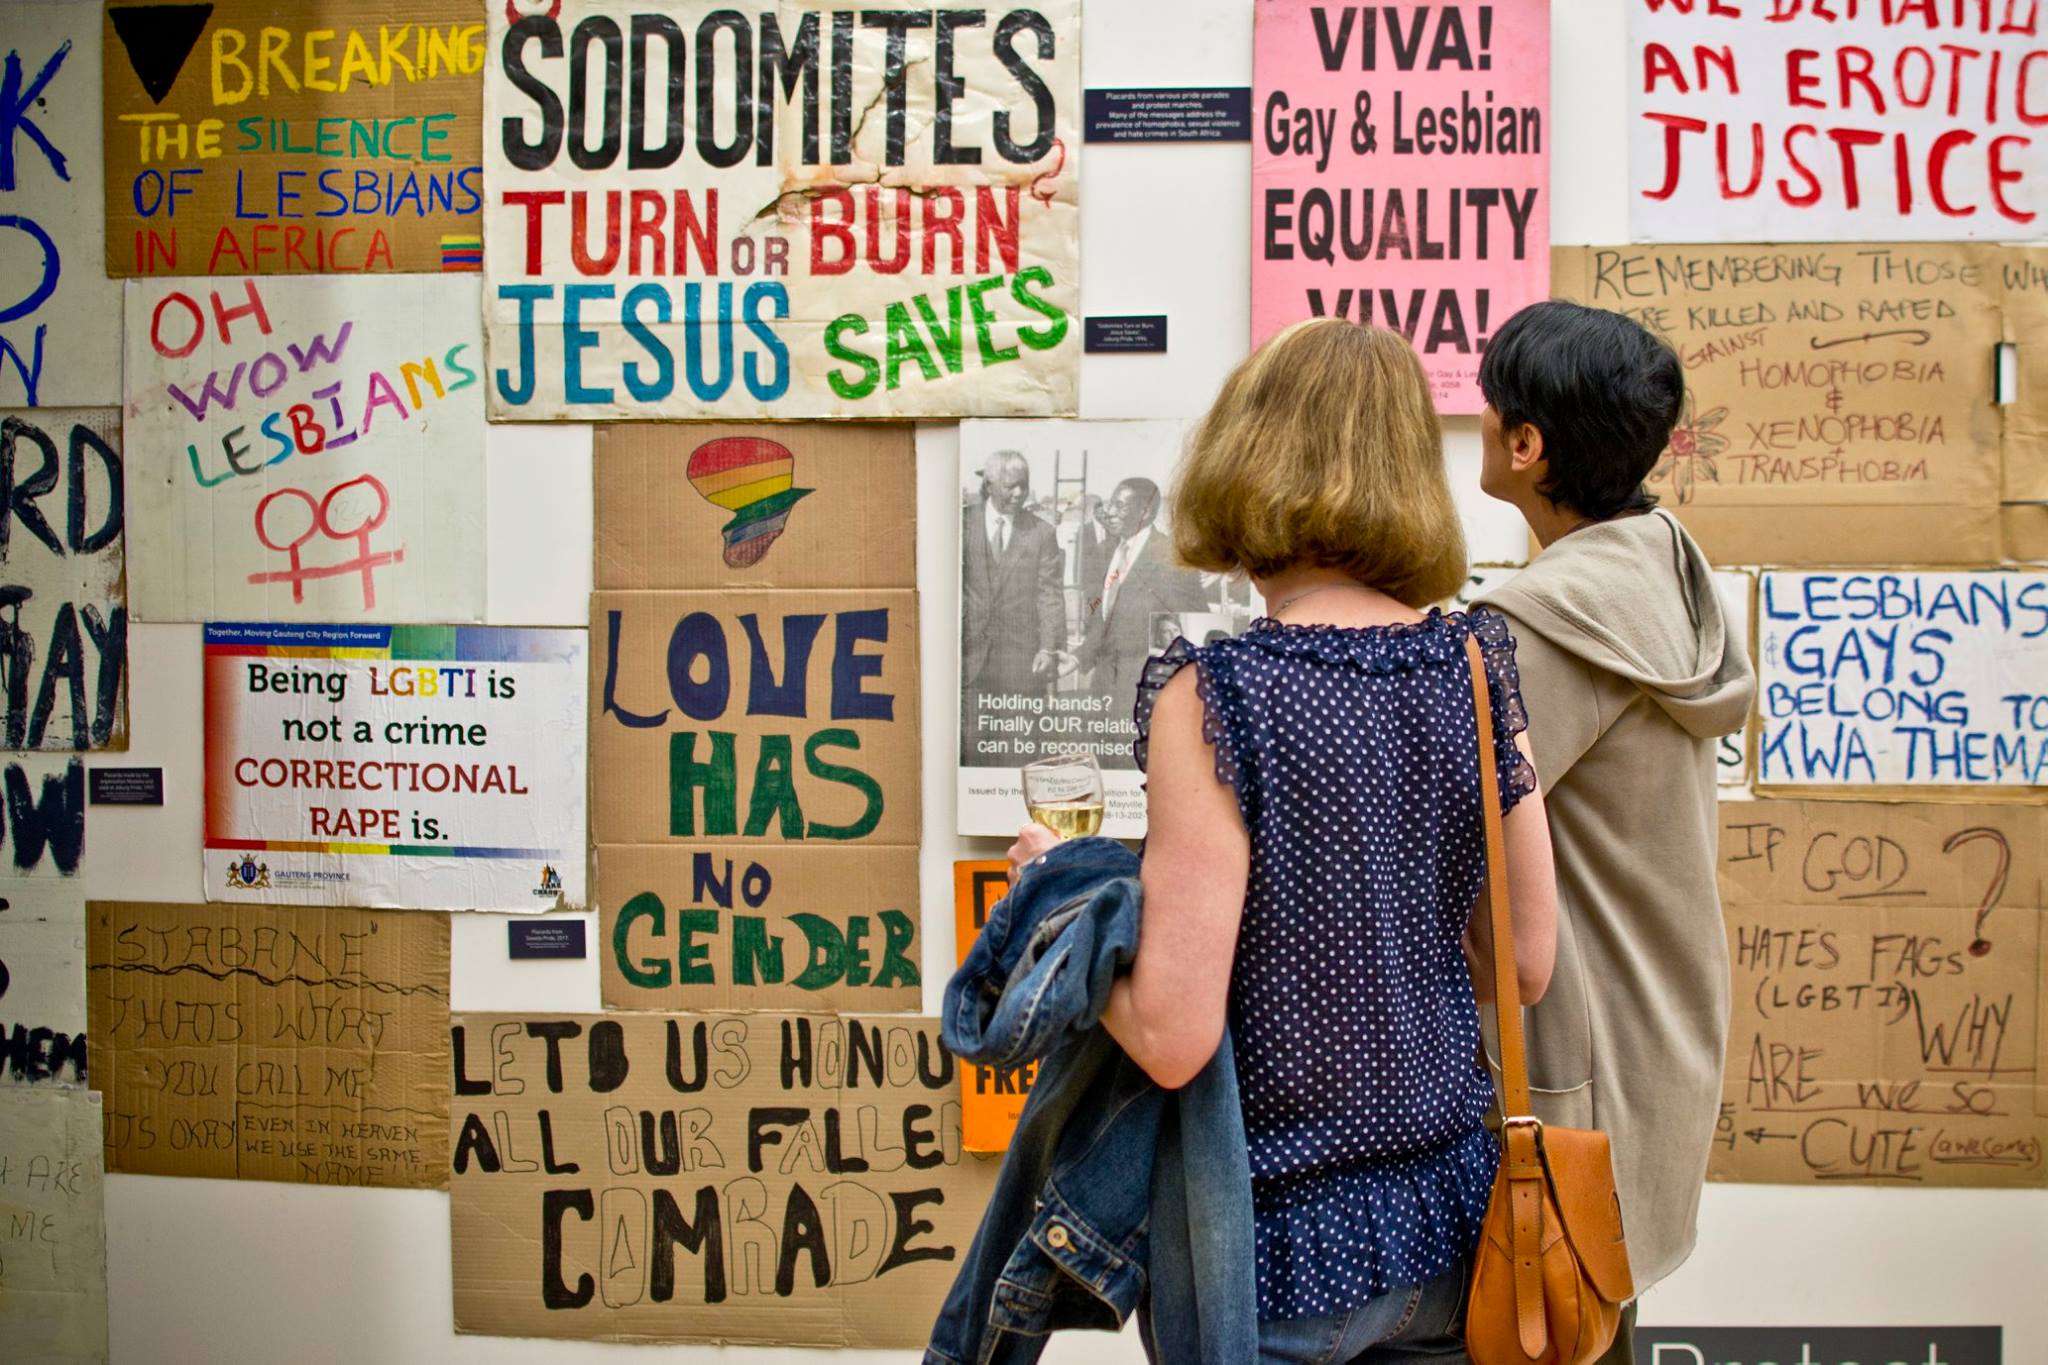 BREAKING
THE SILENCE
OF LESBIANS
IN AFRICA
OH
WOW
LESBIANS
SODOMITES
TURN OR BURN
JESUS SAVES
Placards from various pride parades
and protest marches.
Many of the messages address the
prevalence of homophobia, sexual violence
and hate crimes in South Africa.
"Sodomites Turn or Burn,
Jesus Saves",
Joburg Pride, 1994.
VIVA!
Gay & Lesbian
EQUALITY
VIVA!
WE DEMAND
AN EROTIC
JUSTICE
REMEMBERING THOSE
KILLED AND RAPED
AGAINST
HOMOPHOBIA
&
XENOPHOBIA
+
TRANSPHOBIA
Together, Moving Gauteng City Region Forward
Being LGBTI is
not a crime
CORRECTIONAL
RAPE is.
GAUTENG PROVINCE
LOVE
HAS
NO
GENDER
Holding hands?
Finally OUR
can be recognised
Issued by the
Mayville
LESBIANS
& GAYS
BELONG TO
KWA-THEMA
"STABANE"
THATS WHAT
YOU CALL ME
ITS OKAY EVEN IN HEAVEN
WE USE THE SAME
NAME!!!!
Placards from
Soweto Pride, 2017.
LETS US HONOU
ALL OUR FALLEN
COMRADE
FRE
IF GOD ?
HATES FAGs
(LGBTIA) WHY
ARE we so
CUTE (awesome)
RD
AY
ARE
ME